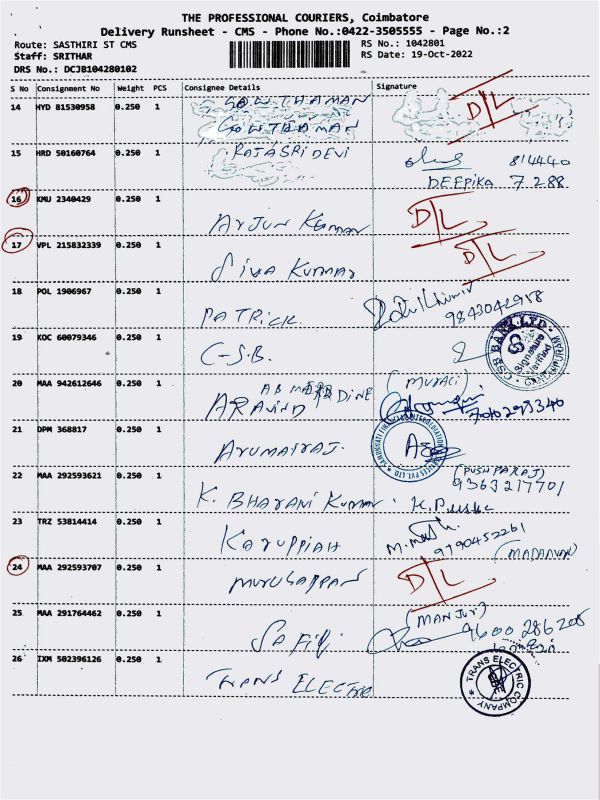 THE PROFESSIONAL COURIERS, Coimbatore
Delivery Runsheet - CMS - Phone No.:0422-3505555 - Page No.:2
Route: SASTHIRI ST CMS RS No.: 1042801
Staff: SRITHAR RS Date: 19-Oct-2022
DRS No.: DCJB104280102
S No Consignment No Weight PCS Consignee Details Signature
14 HYD 81530958 0.250 1 GOWTHAMAN D/L
GOWTHAMAN
15 HRD 50160764 0.250 1 RAJASRI DEVI 814440
DEEPIKA 7288
16 KMU 2340429 0.250 1 D/L
Arjun Kumar
17 VPL 215832339 0.250 1 D/L
Siva Kumar
18 POL 1906967 0.250 1
PATRICK 9843042958
19 KOC 60079346 0.250 1
C-S.B. CSB BANK LTD. Signature Verified
20 MAA 942612646 0.250 1 (MURALI)
ARAVIND 7010293340
21 DPM 368817 0.250 1
Arumairaj.
22 MAA 292593621 0.250 1 (PUSHPARAJ)
9363217701
K. BHARANI KUMAR.
23 TRZ 53814414 0.250 1
Karuppiah 9790452261
24 MAA 292593707 0.250 1 D/L
Murugappan
25 MAA 291764462 0.250 1 (MANJU)
9600286205
26 IXM 502396126 0.250 1
TRANS ELECTRO TRANS ELECTRIC COMPANY